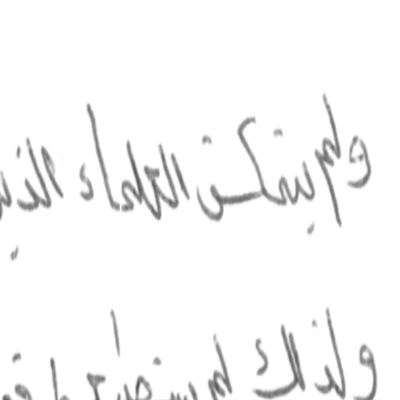 ولم يتمكن العلماء الذين
ولذلك لم يستطع